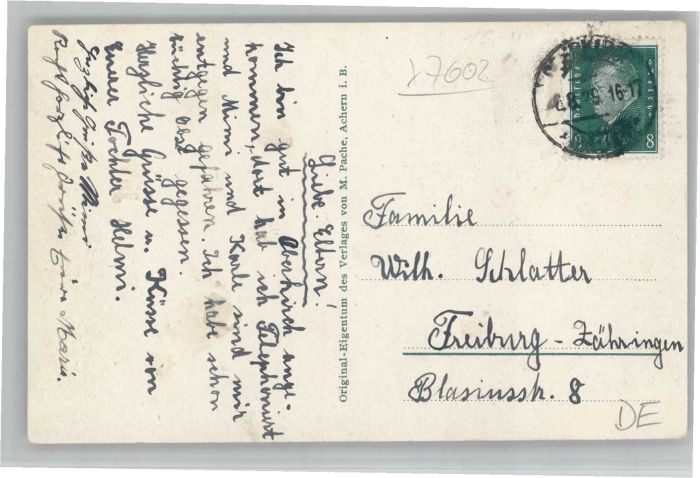 Liebe Eltern!
Ich bin gut in Oberkirch ange-
kommen, dort hab ich Telephoniert
und Mimi und Karle sind mir
entgegen gefahren. Ich habe schon
tüchtig gegessen.
Herzliche Grüsse u. Küsse von
Eurer Tochter Helmi.
Herzliche Grüße Mimi
Recht herzliche Grüße Eure Marie.
Original-Eigentum des Verlages von M. Pache, Achern i. B.
x7602
29. 16-17
8
Familie
Wilh. Schlatter
Freiburg - Zähringen
Blasiusstr. 8
DE